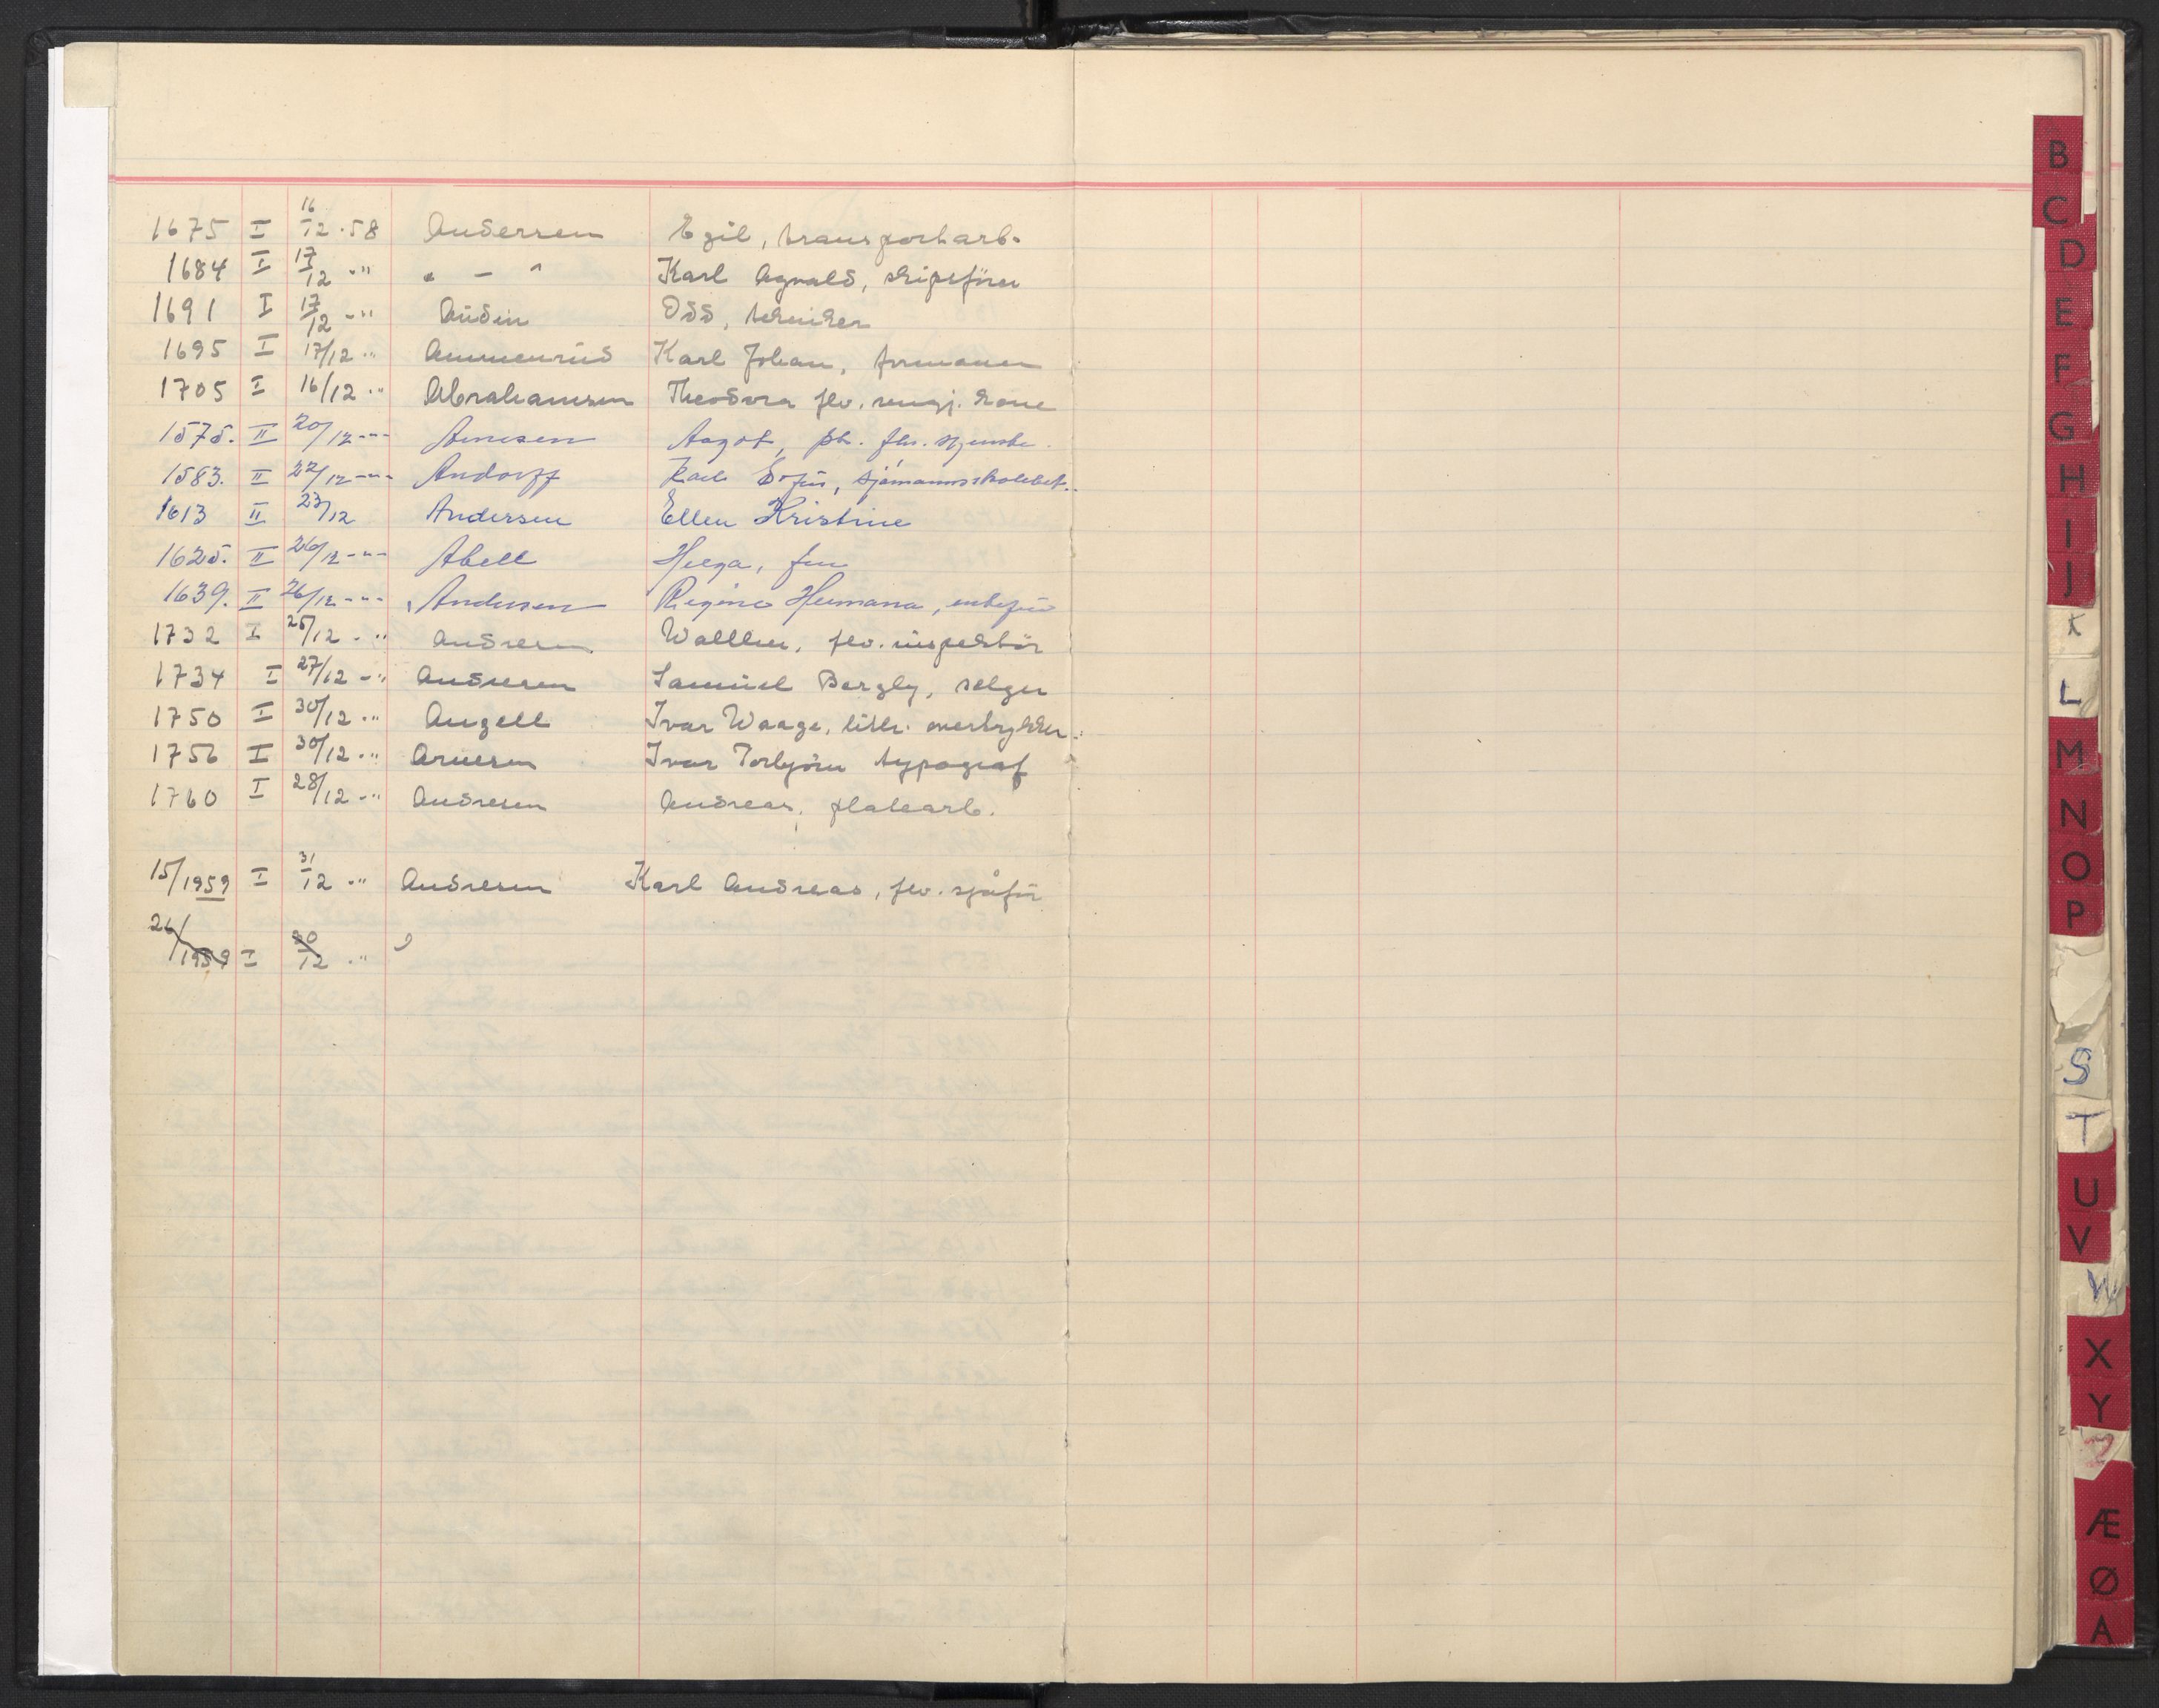 1675 I 16/12 ·58 Anderssen Egil, transportarb.
1684 I 17/12 -" " - " Karl Agnald, skipsfører
1691 I 17/12 -" Audin Odd, tekniker
1695 I 17/12 -" Ammenrud Karl Johan, formann
1705 I 16/12 -" Abrahamsen Theodora flv. rengj. kone
1575. II 20/12 -"- Arnesen Aagot,
1583. II 22/12 -"- Andorff Karl sjømannsskolebest.
1613 II 23/12 Andersen Ellen Kristine
1625. II 26/12 -"- Abell Helga, fru
1639. II 26/12 -"- Andersen Regine Hermana, enkefru
1732 I 25/12 -" Andresen flv. inspektør
1734 I 27/12 -" Andresen Samuel Bergly, selger
1750 I 30/12 -" Angell Ivar Waage, lith. overtrykker.
1756 I 30/12 -" Arnesen Ivar Torbjørn typograf
1760 I 28/12 -" Andresen Andreas, platearb.
15/1959 I 31/12 -" Andresen Karl Andreas, flv. sjåfør
26/1959 I 30/12 -"
B
C
D
E
F
G
H
I
J
K
L
M
N
O
P
S
T
U
V
W
X
Y
Æ
Ø
A